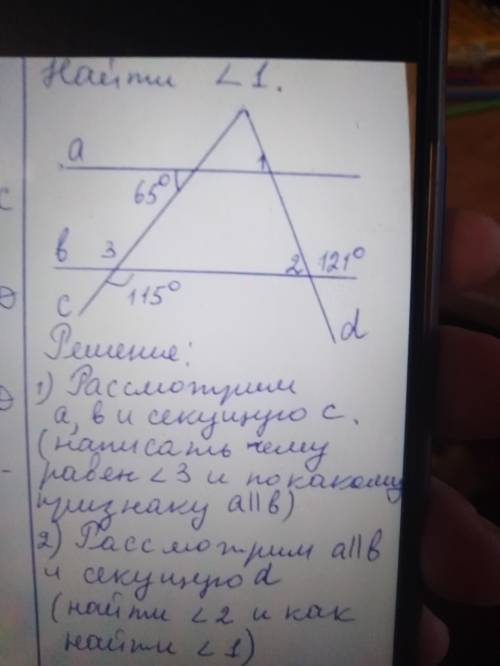 Найти ∠1.
a
65°
1
в 3
2 121°
115°
c
d
Решение:
1) Рассмотрим
a, в и секущую c.
(написать чему
равен ∠3 и по какому
признаку a||в)
2) Рассмотрим a||в
и секущую d
(найти ∠2 и как
найти ∠1)